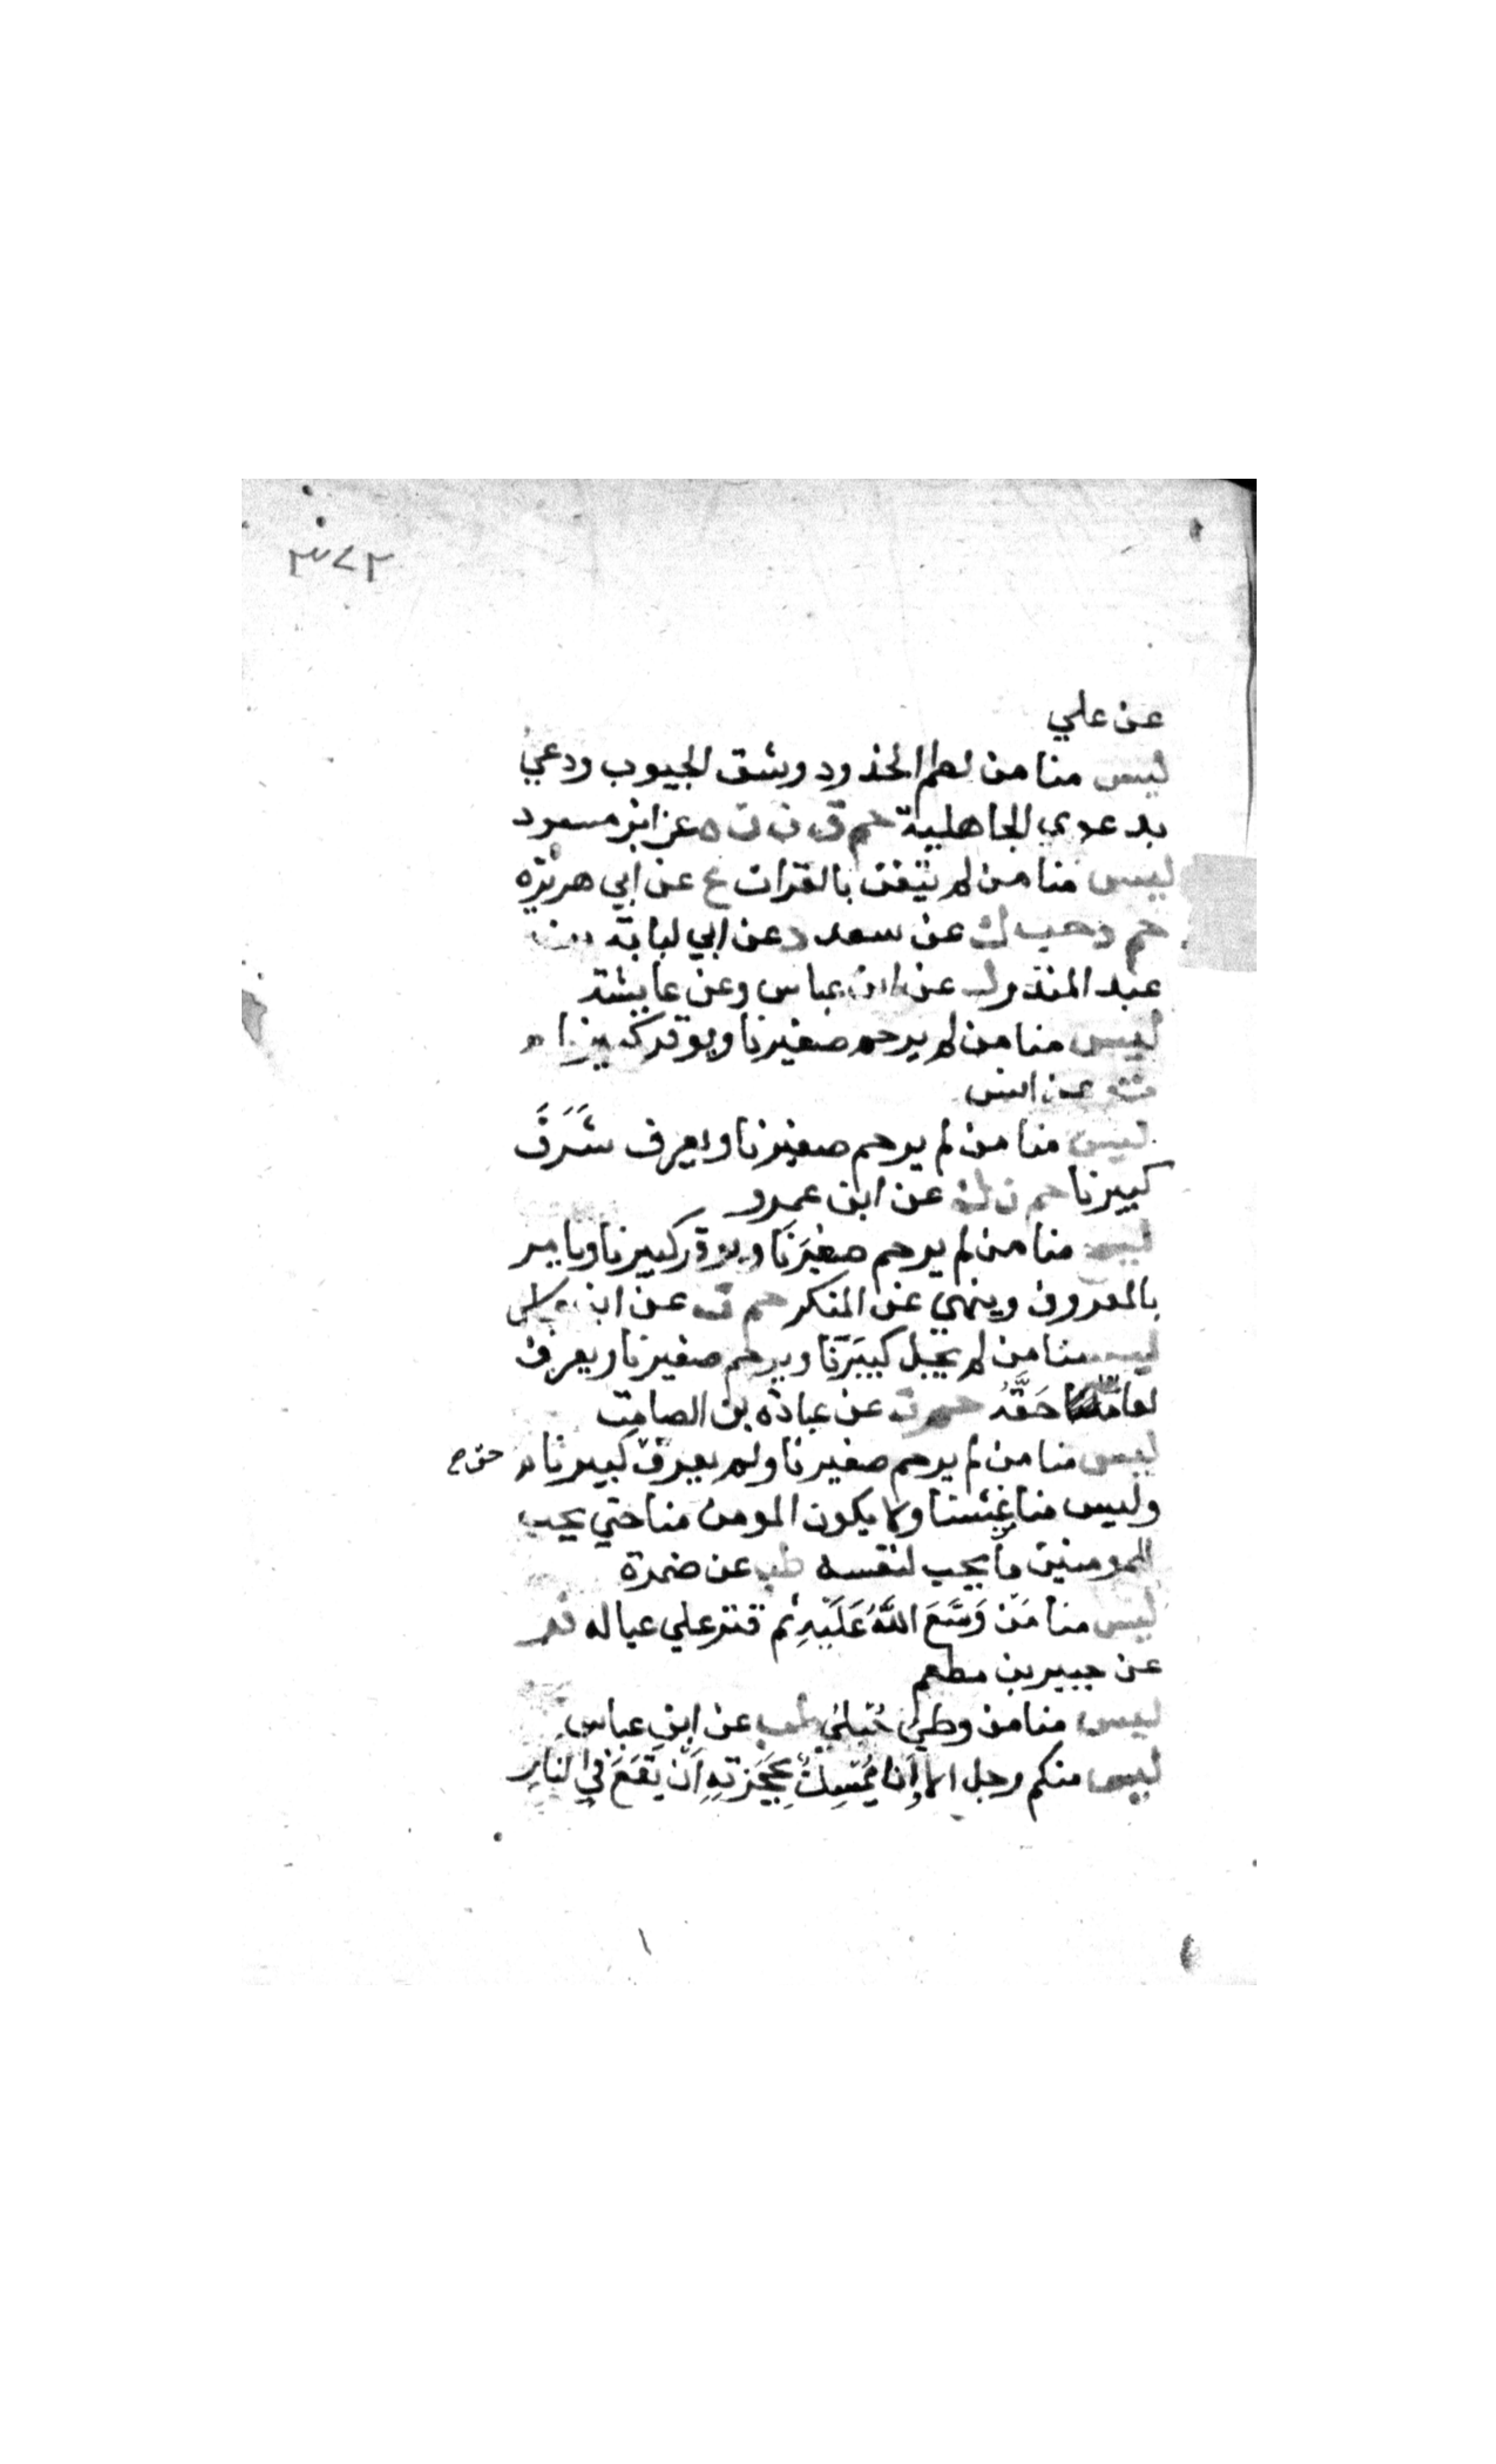 ٣٧٢
عن علي
ليس منا من لطم الخدود وشق الجيوب ودعي
بدعوي الجاهلية حم ق ت ن ه عن ابن مسعود
ليس منا من لم يتغن بالقران خ عن ابي هريرة
حم د حب ك عن سعد د عن ابي لبابة بن
عبد المنذر ك عن ابن عباس وعن عايشة
ليس منا من لم يرحم صغيرنا ويوقر كبيرنا
ت عن انس
ليس منا من لم يرحم صغيرنا ويعرف شَرَفَ
كبيرنا حم ت ك عن ابن عمرو
ليس منا من لم يرحم صغيرَنَا ويوقر كبيرنا ويامر
بالمعروف وينهي عن المنكر حم ت عن ابن عباس
ليس منا من لم يجل كبيَرنَا ويرحم صغيرنا ويعرف
لعالمنا حَقَّهُ حم ك عن عبادة بن الصامت
ليس منا من لم يرحم صغيرنا ولم يعرف كبيرنا حق
وليس منا من غشنا ولا يكون المومن منا حتي يحب
للمومنين ما يحب لنفسه طب عن ضمرة
ليس منا مَنْ وَسَّعَ اللهُ عَلَيْهِ ثم قتر علي عياله فر
عن جبير بن مطعم
ليس منا من وطئ حُبْلَي طب عن ابن عباس
ليس منكم رجل الا انا مُمْسِكٌ بِحُجْزَتِهِ اَنْ يَقَعَ في النارِ